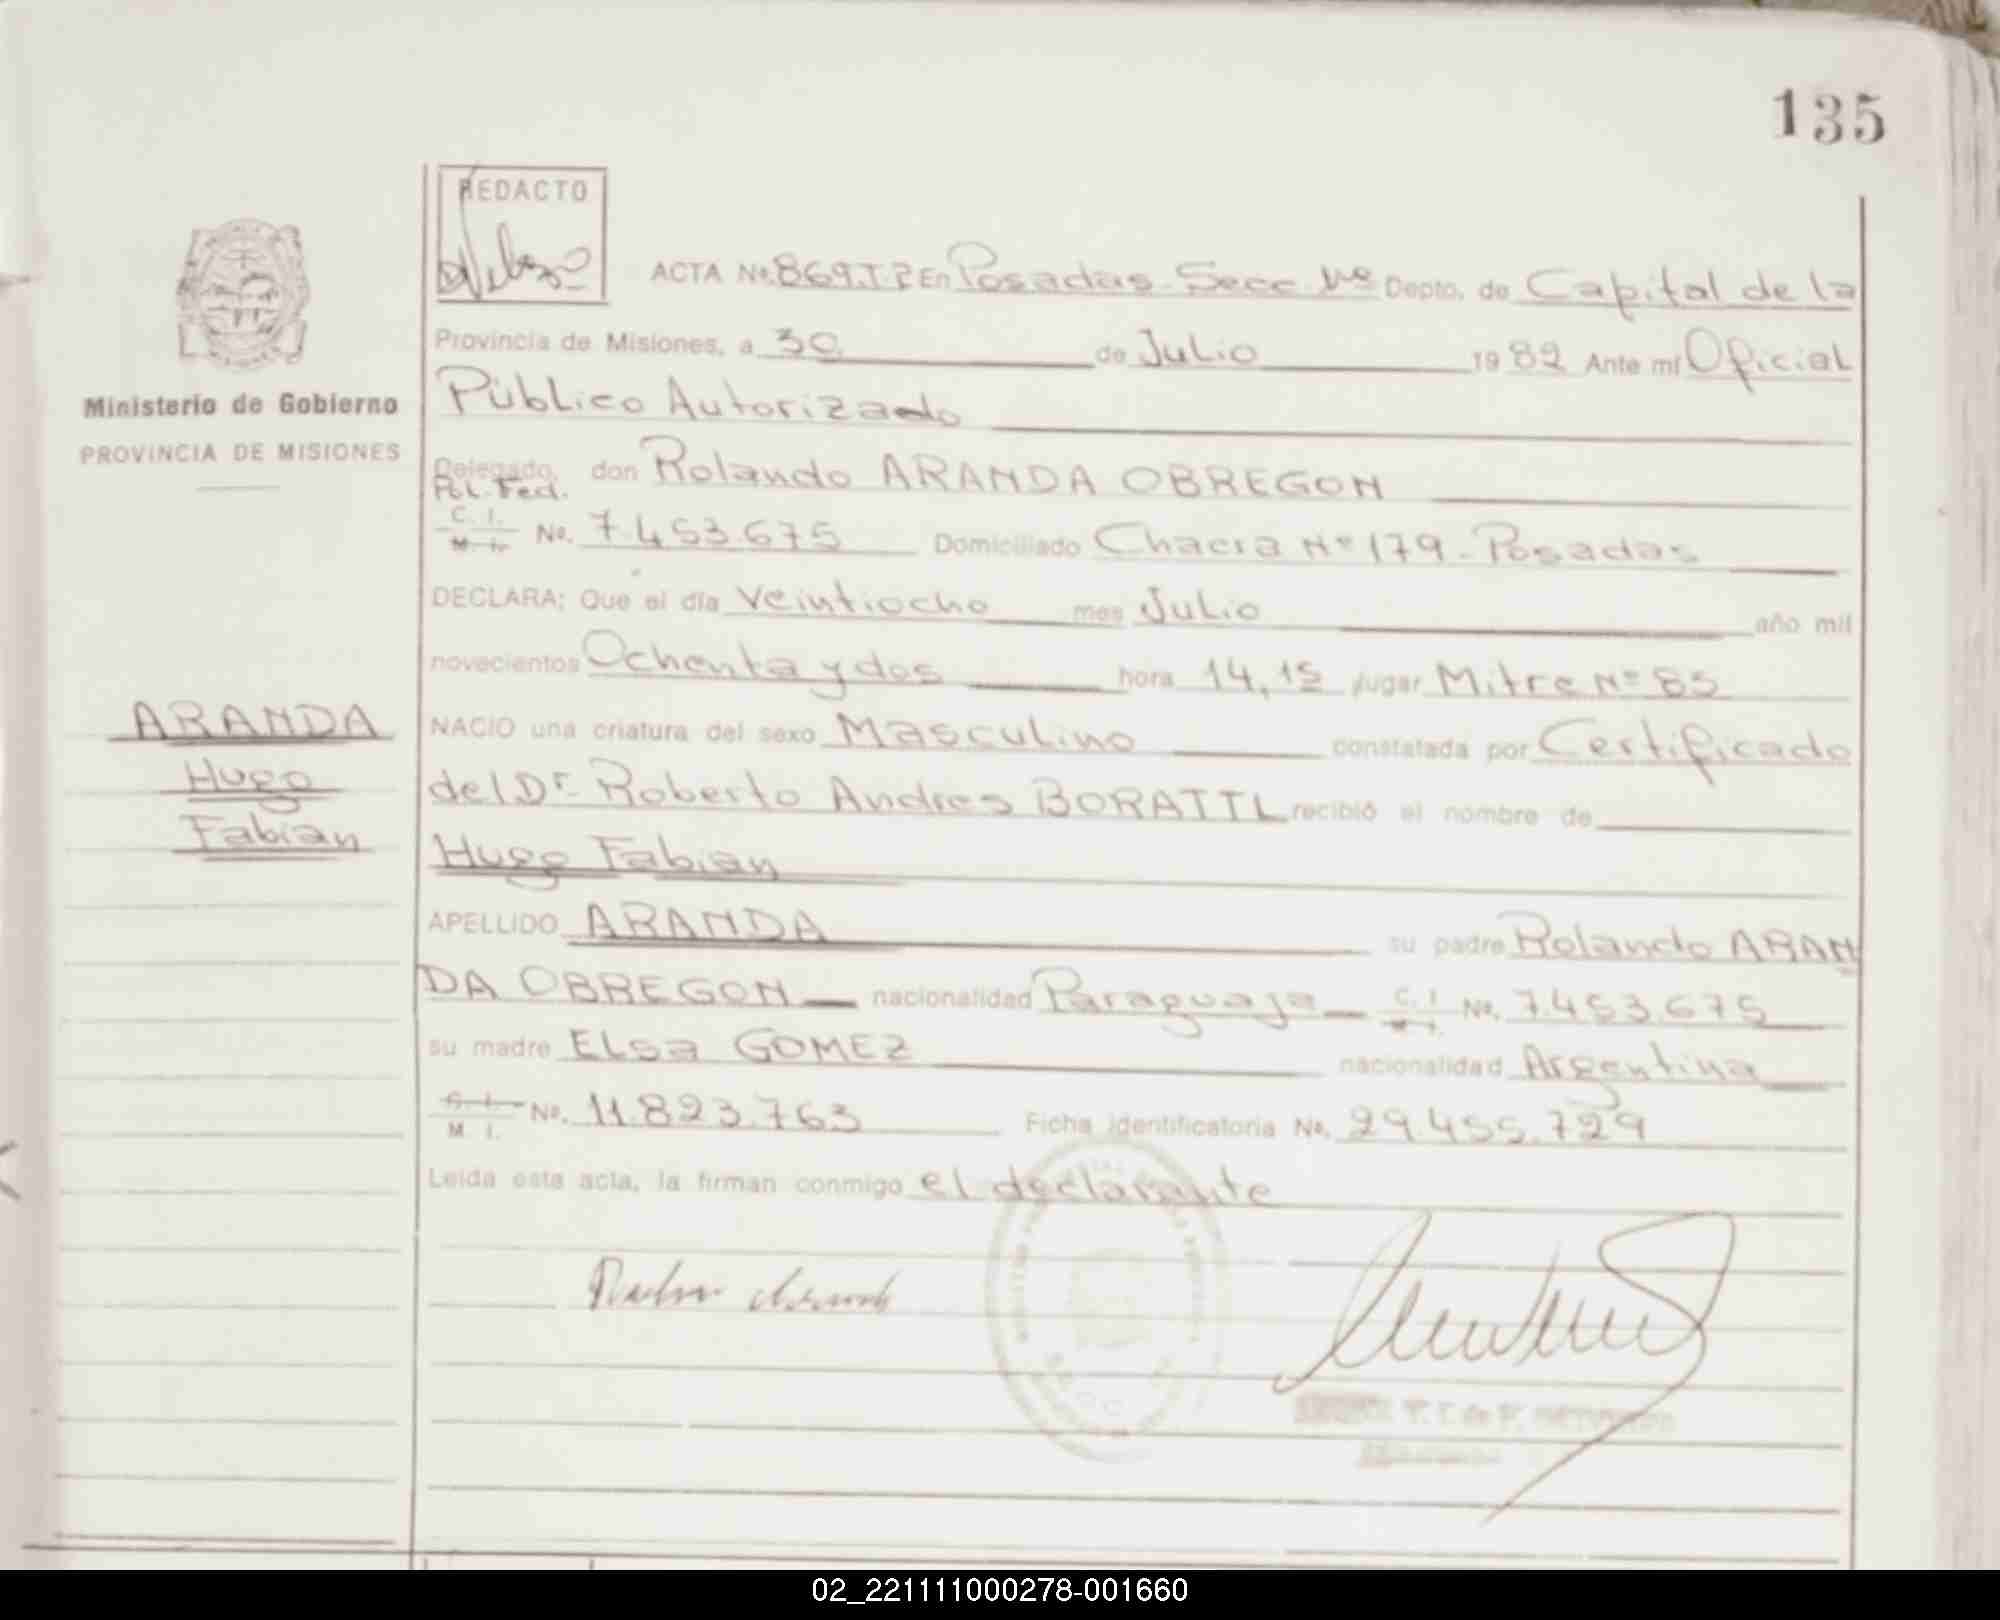 135
REDACTO
ACTA No. 869.T.2 En Posadas Secc. 1ª Depto. de Capital de la
Provincia de Misiones, a 30 de Julio 1982 Ante mí Oficial
Público Autorizado
Delegado, don Rolando ARANDA OBREGON
Pol. Fed.
C. I.
M. I. No. 7.453.675 Domiciliado Chacra Nº 179 - Posadas
DECLARA: Que el día Veintiocho mes Julio año mil
novecientos Ochenta y dos hora 14,15 lugar Mitre Nº 85
NACIO una criatura del sexo Masculino constatada por Certificado
del Dr. Roberto Andres BORATTI recibió el nombre de
Hugo Fabian
APELLIDO ARANDA su padre Rolando ARAN
DA OBREGON nacionalidad Paraguaja C. I. M. I. No. 7.453.675
su madre Elsa GOMEZ nacionalidad Argentina
C. I.
M. I. No. 11.823.763 Ficha identificatoria No. 29.455.729
Leída esta acta, la firman conmigo el declarante
Ministerio de Gobierno
PROVINCIA DE MISIONES
ARANDA
Hugo
Fabian
02_221111000278-001660